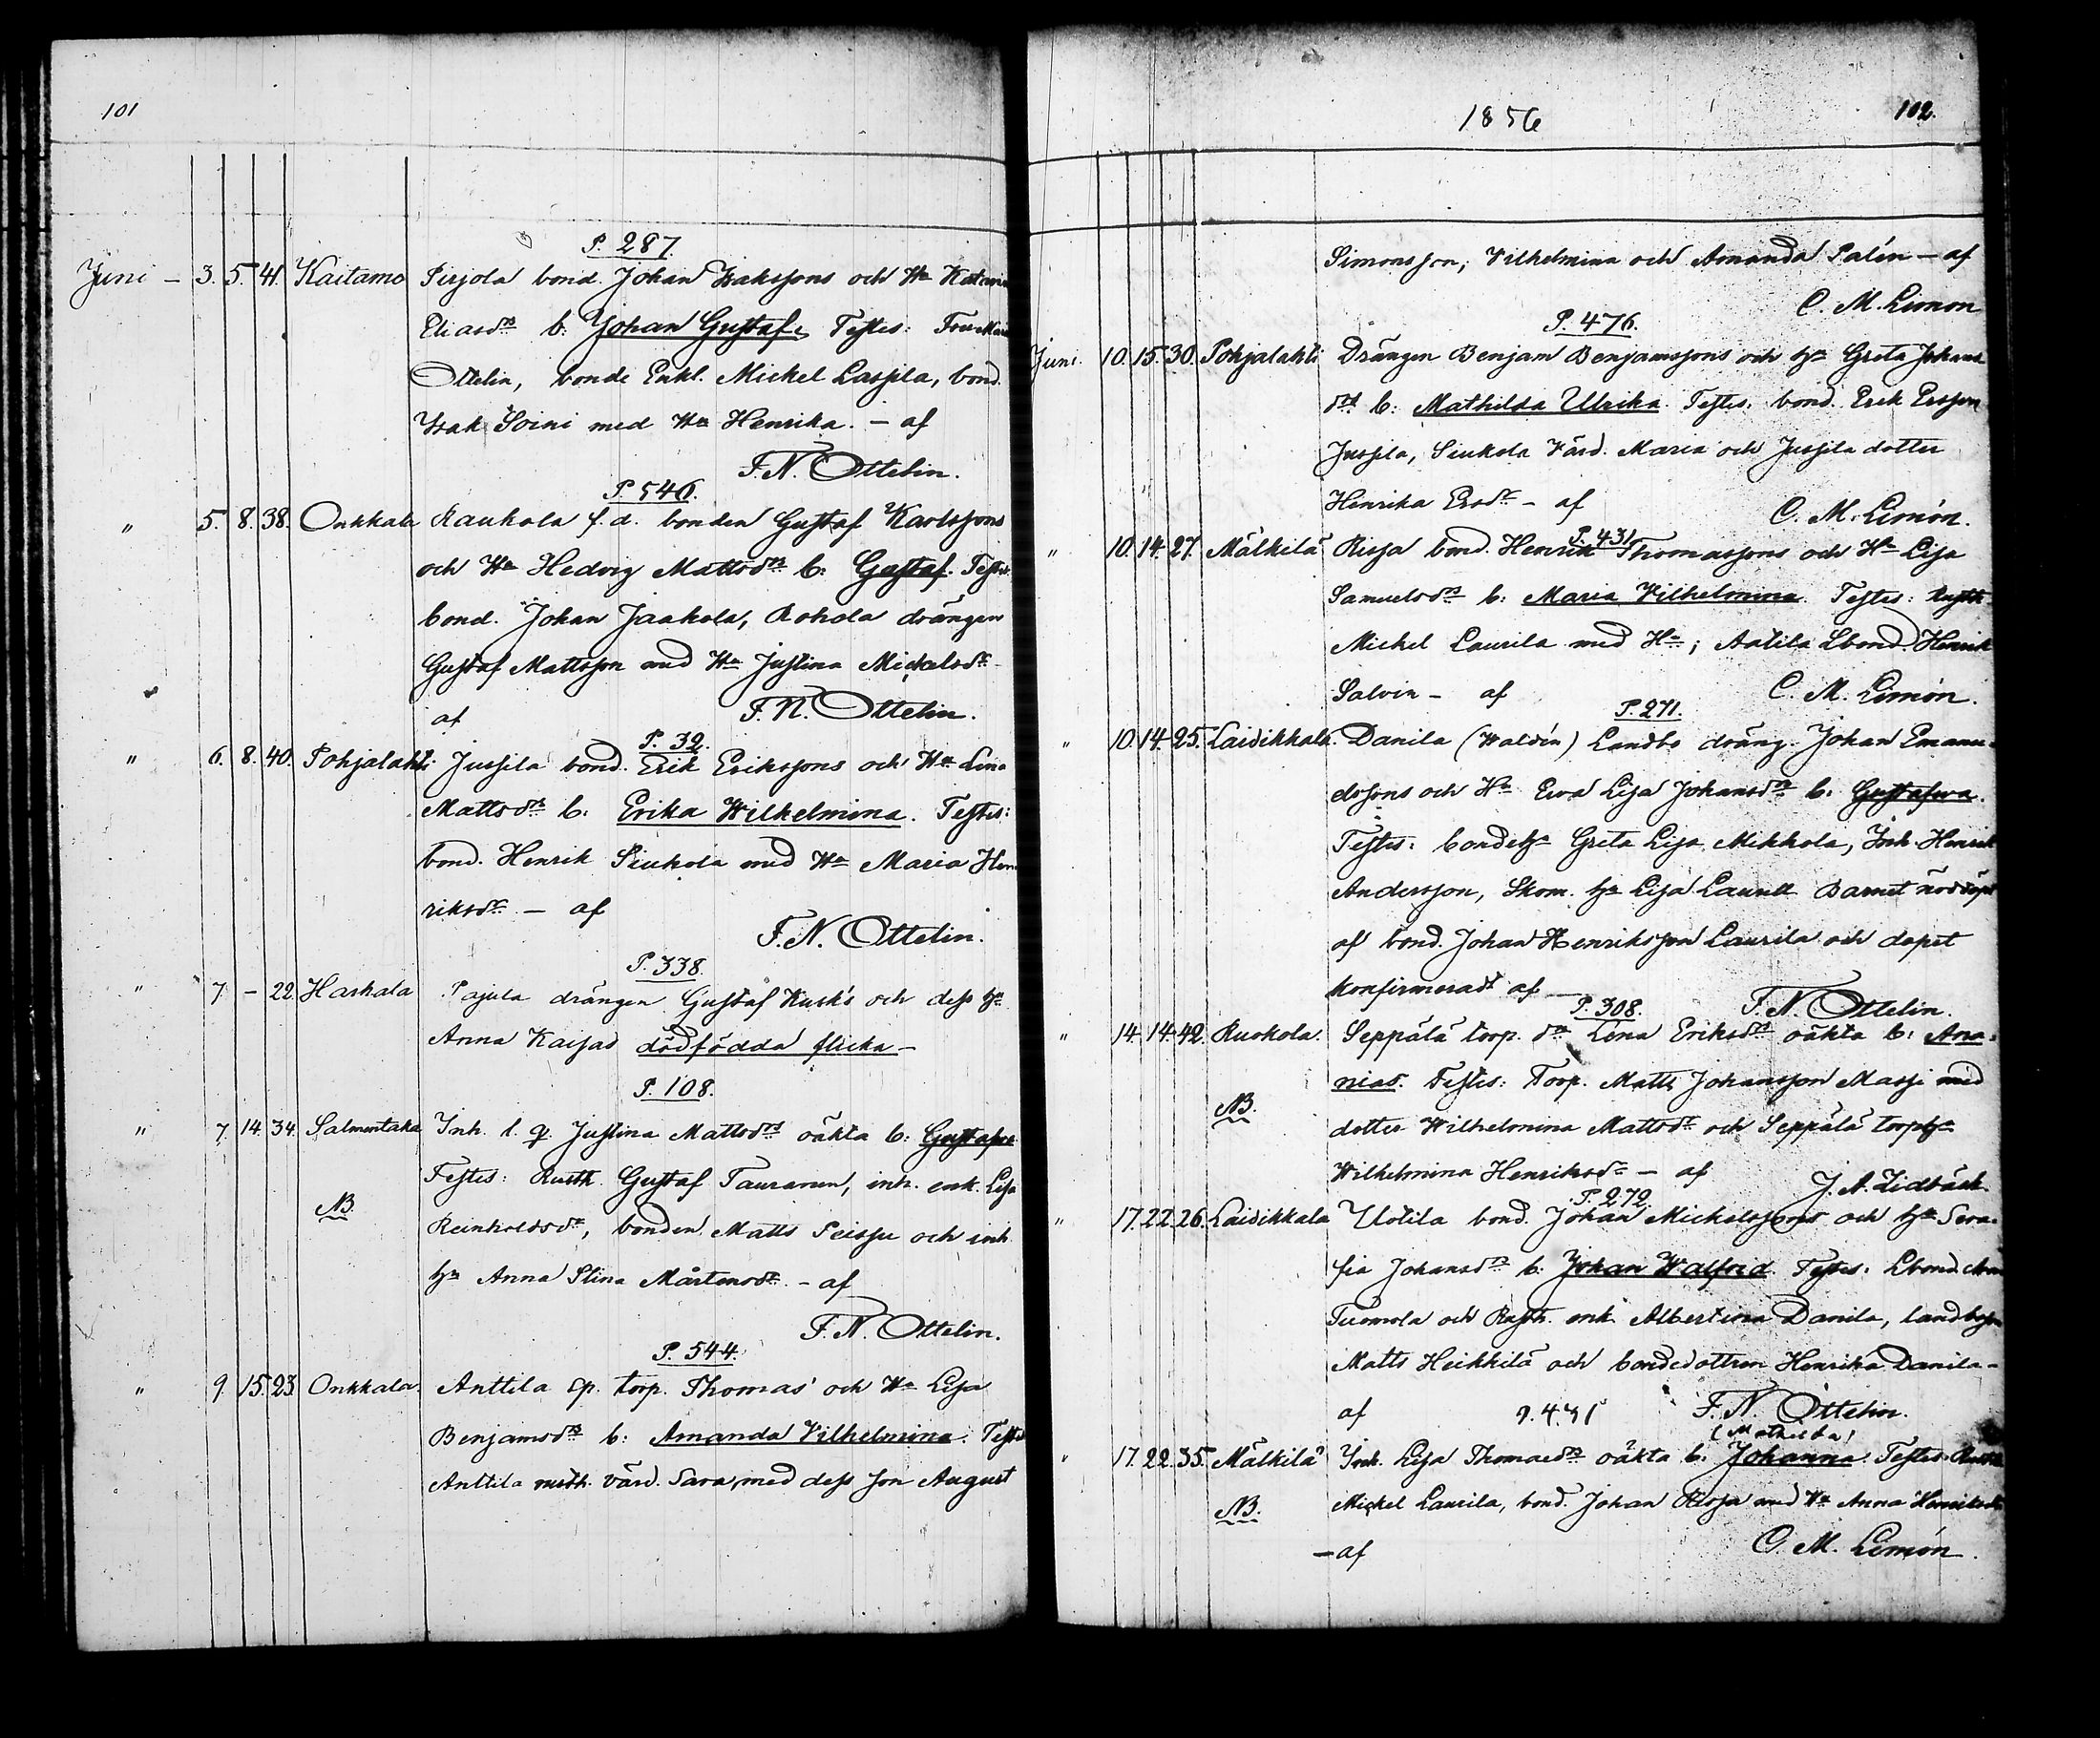 101
P. 287.
Juni - 3. 5. 41. Kaitamo Pirjola bond. Johan Isakssons och Hu Katarina
Eliasdrs b: Johan Gustaf. Testes: Fru Maria
Ottelin, bonde Enkl. Mickel Lassila, bond.
Isak Soini med Hu Henrika. - af
F. N. Ottelin.
P. 546.
" 5. 8. 38. Onkkala Raukola f. d. bonden Gustaf Karlssons
och Hu Hedvig Mattsdrs b: Gustaf. Testes:
bond. Johan Jaakola, Rohola drängen
Gustaf Mattsson med Hu Justina Mickelsdr -
af F. N. Ottelin.
P. 32.
" 6. 8. 40. Pohjalahti Jussila bond. Erik Erikssons och Hu Lena
Mattsdrs b: Erika Wilhelmina. Testes:
bond. Henrik Siukola med Hu Maria Hen
riksdr - af
F. N. Ottelin.
P. 338.
" 7. - 22. Harhala Pajula drängen Gustaf Kusk's och dess Hu
Anna Kaisas dödfödda flicka -
P. 108.
" 7. 14. 34. Salmentaka Inh. l. q. Justina Mattsdrs oäkta b: Gustafva
Testes: Rusth. Gustaf Tauranen, inh. enk. Lisa
NB. Reinholdsdr, bonden Matts Seissu och inh.
hu Anna Stina Mårtensdr. - af
F. N. Ottelin.
P. 544.
" 9. 15. 23. Onkkala. Anttila sp. torp. Thomas' och Hu Lisa
Benjamsdrs b: Amanda Vilhelmina. Testes
Anttila rusth. värd. Sara, med dess son August
1856 102.
Simonsson, Vilhelmina och Amanda Palén - af
C. M. Limón
P. 476.
Juni 10. 15. 30. Pohjalahti Drängen Benjam Benjamssons och hu Greta Johans
drs b: Mathilda Ulrika. Testes: bond. Erik Ersson
Jussila, Siukola Värd. Maria och Jussila dotter
Henrika Ersdr - af C. M. Limón.
P. 431
" 10. 14. 27. Mälkilä Risja bond. Henrik Thomassons och Hu Lisa
Samuelsdrs b: Maria Vilhelmina. Testes: Rusth
Michel Laurila med Hu; Aatila Lbond. Henrik
Salvin - af C. M. Limón.
P. 271.
" 10. 14. 25. Laidikkala. Danila (Waldén) Landbo dräng. Johan Emanu-
elssons och Hu Eva Lisa Johansdrs b: Gustafva.
Testes: bondehu Greta Lisa Mikkola, Inh. Henrik
Andersson, Skom. hu Lisa Laurell Barnet nöddöpt
af bond. Johan Henriksson Laurila och dopet
konfirmeradt af - F. N. Ottelin.
P. 308.
" 14. 14. 42. Ruokola. Seppälä torp. dr Lena Eriksdrs oäkta b: Ana-
nias. Testes: Torp. Matts Johansson Massi med
NB. dotter Wilhelmina Mattsdr och Seppälä torphu
Wilhelmina Henriksdr - af J. A. Lidbäck.
P. 272.
" 17. 22. 26. Laidikkala Uotila bond. Johan Mickelssons och hu Sera-
fia Johansdrs b: Johan Walfrid. Testes: Lbond.
Tuomola och Rusth. enk. Albertina Danila, landbo
Matts Heikkilä och bondedottren Henrika Danila -
af P. 431 F. N. Ottelin.
(Mathilda)
" 17. 22. 35. Mälkilä Inh. Lisa Thomasdrs oäkta b: Johanna. Testes: Rusth
NB. Mickel Laurila, bond. Johan Risja med Hu Anna Henriksdr
- af C. M. Limón.